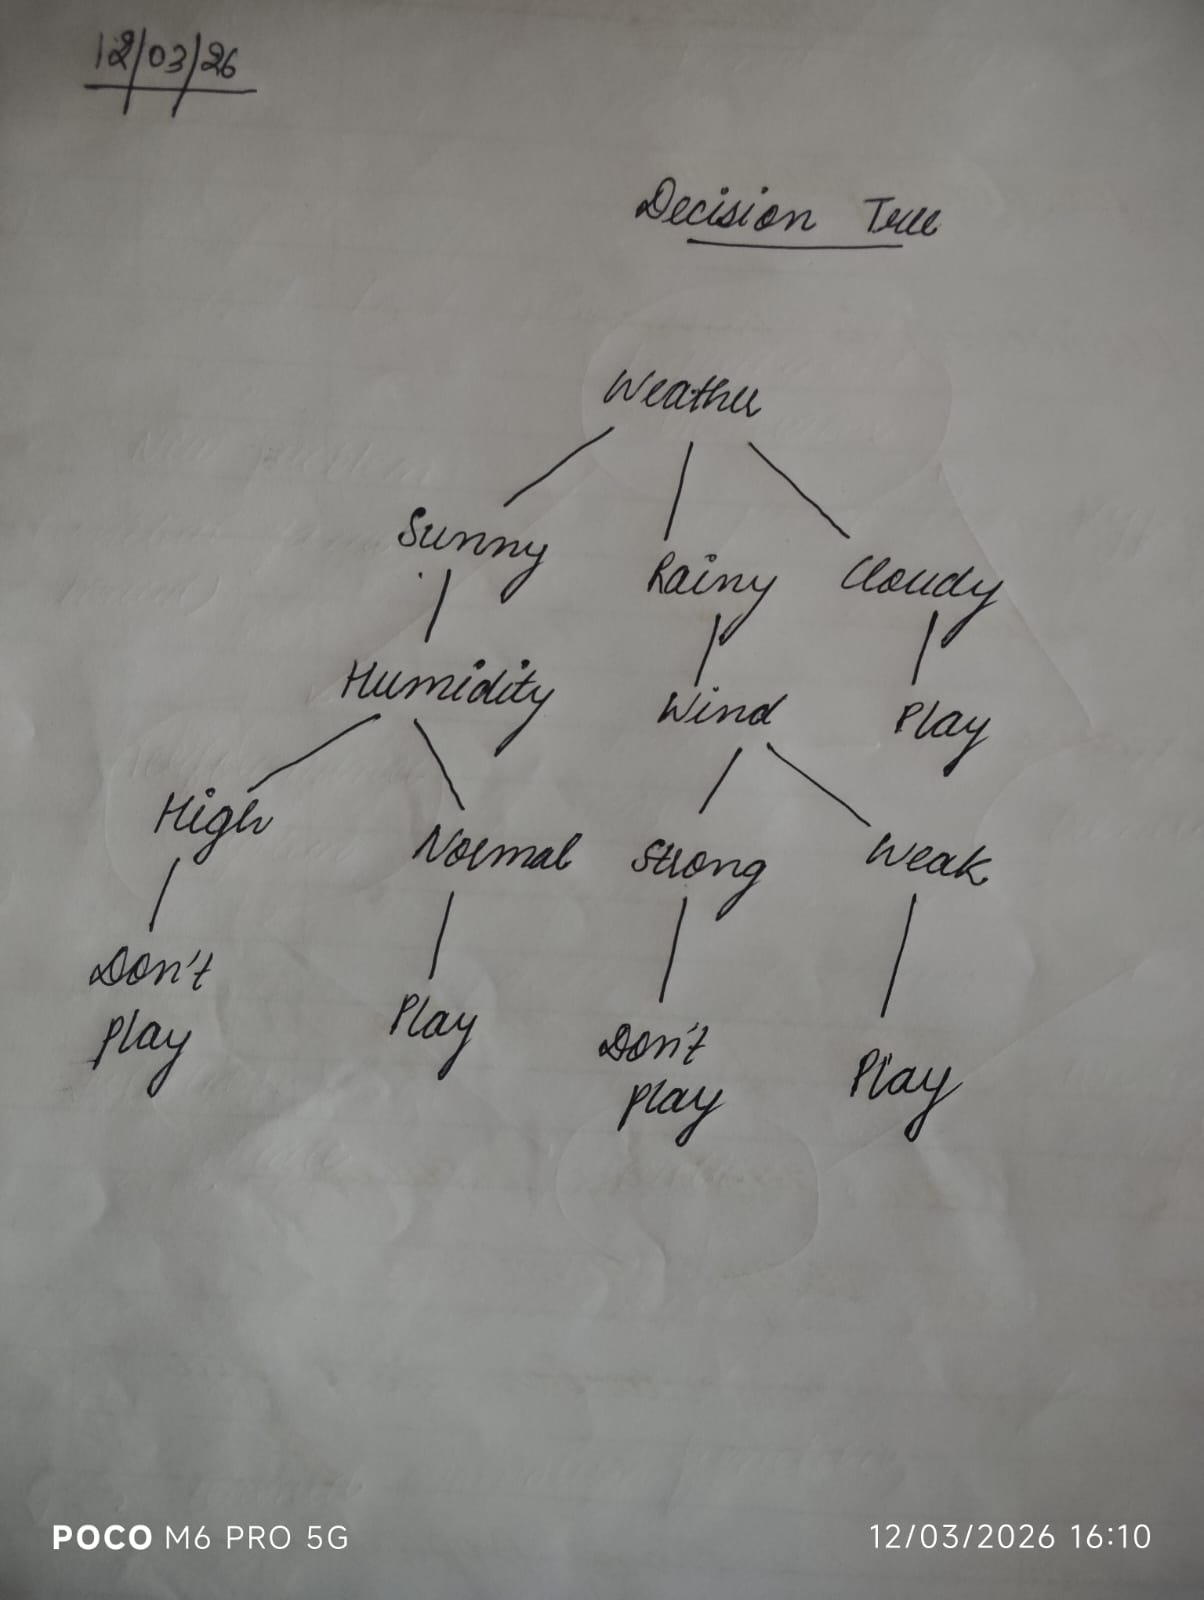 12/03/26
Decision Tree
Weather
Sunny Rainy Cloudy
Humidity Wind Play
High Normal Strong Weak
Don't play Play Don't play Play
POCO M6 PRO 5G 12/03/2026 16:10